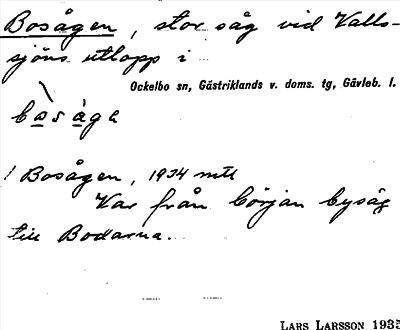 Bosågen, stor såg vid Valls-
sjöns utlopp i
Ockelbo sn, Gästriklands v. doms. tg, Gävleb. l.
bòsàga
1 Bosågen, 1934 mtl
Var från början bysåg
till Bodarna.
LARS LARSSON 1935